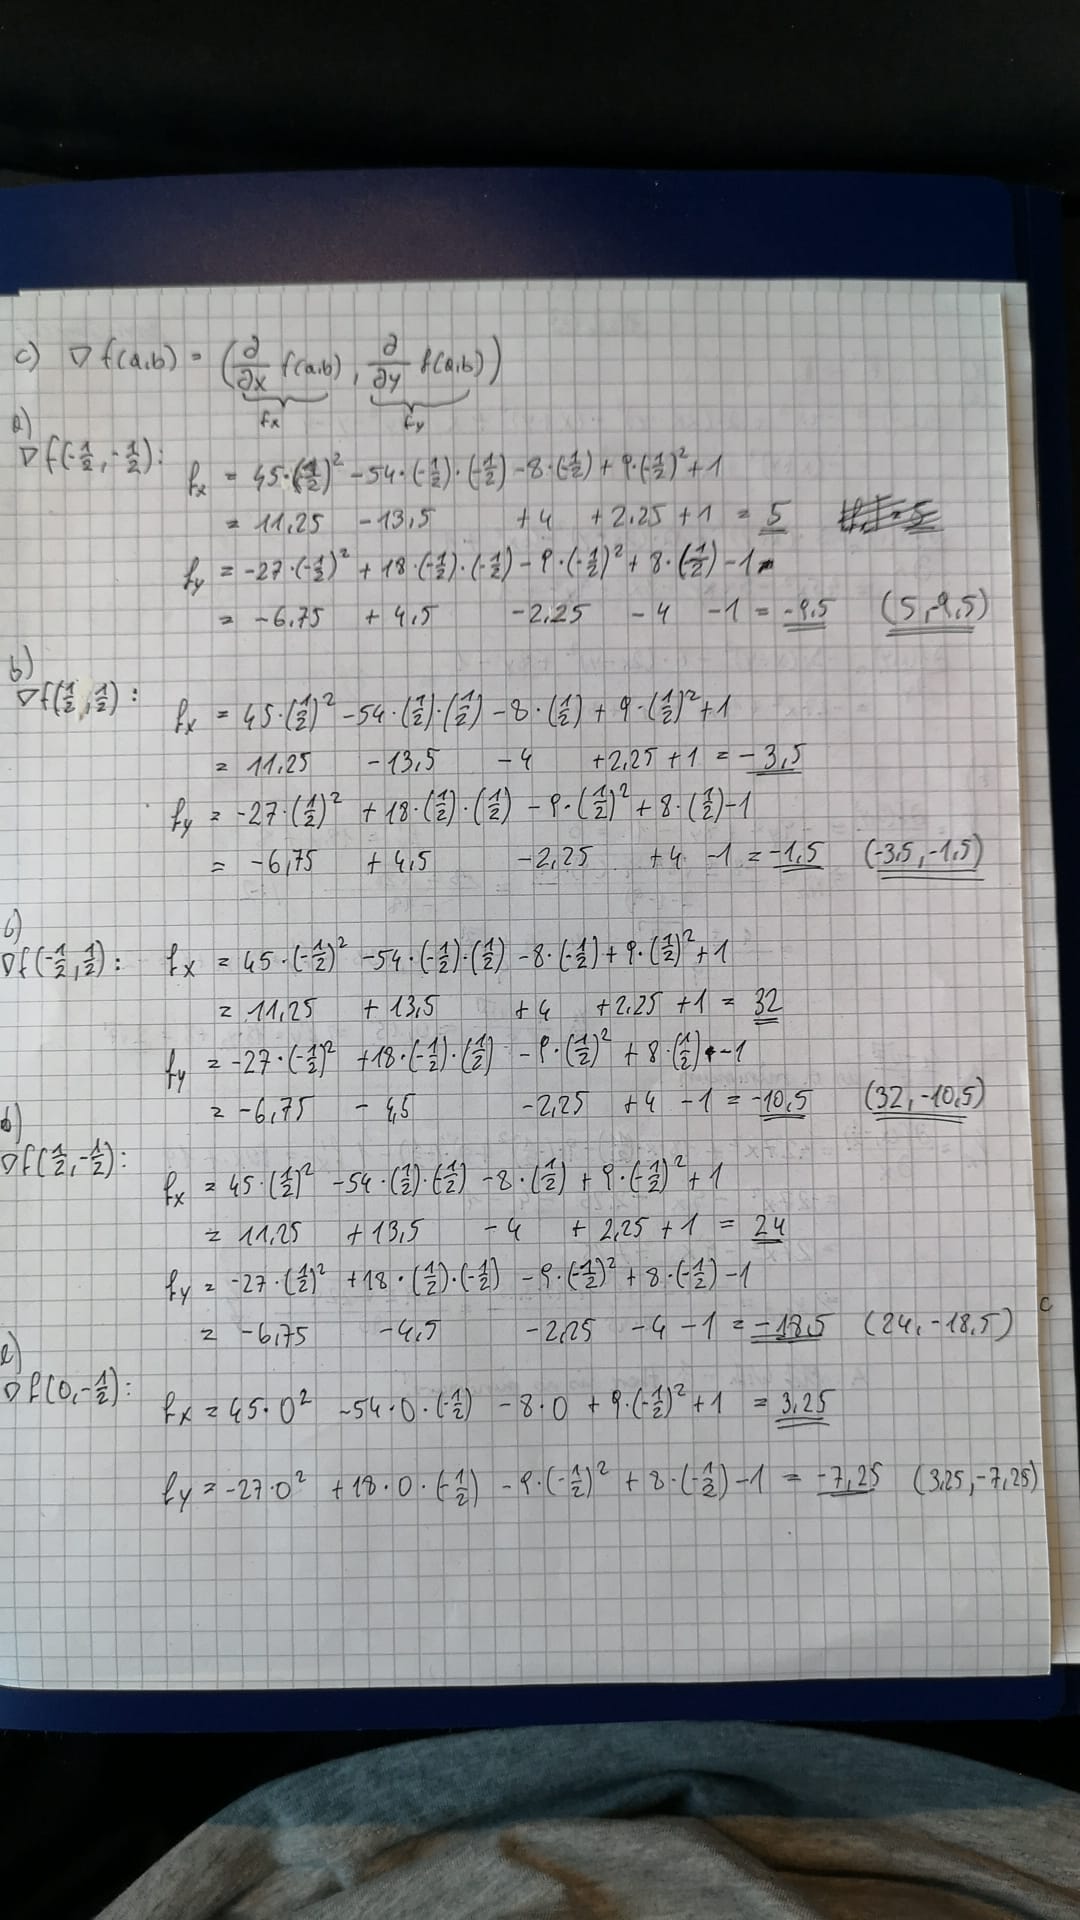 c) ∇ f(a,b) = (∂/∂x f(a,b), ∂/∂y f(a,b))
fx fy
a)
∇f(-1/2, -1/2):
fx = 45·(1/2)² -54·(-1/2)·(-1/2) -8·(-1/2) + 9·(-1/2)² +1
= 11,25 -13,5 +4 +2,25 +1 = 5
fy = -27·(-1/2)² + 18·(-1/2)·(-1/2) - 9·(-1/2)² + 8·(-1/2) -1
= -6,75 + 4,5 -2,25 -4 -1 = -9,5 (5,-9,5)
b)
∇f(1/2, 1/2):
fx = 45·(1/2)² -54·(1/2)·(1/2) -8·(1/2) + 9·(1/2)² +1
= 11,25 -13,5 -4 +2,25 +1 = -3,5
fy = -27·(1/2)² +18·(1/2)·(1/2) - 9·(1/2)² + 8·(1/2) -1
= -6,75 +4,5 -2,25 +4 -1 = -1,5 (-3,5, -1,5)
∇f(-1/2, 1/2): fx = 45·(-1/2)² -54·(-1/2)·(1/2) -8·(-1/2) + 9·(1/2)² +1
= 11,25 +13,5 +4 +2,25 +1 = 32
fy = -27·(-1/2)² +18·(-1/2)·(1/2) -9·(1/2)² +8·(1/2) -1
= -6,75 - 4,5 -2,25 +4 -1 = -10,5 (32, -10,5)
∇f(1/2, -1/2):
fx = 45·(1/2)² -54·(1/2)·(-1/2) -8·(1/2) + 9·(-1/2)² +1
= 11,25 +13,5 -4 + 2,25 +1 = 24
fy = -27·(1/2)² +18·(1/2)·(-1/2) -9·(-1/2)² + 8·(-1/2) -1
= -6,75 -4,5 -2,25 -4 -1 = -18,5 (24, -18,5)
e)
∇f(0, -1/2):
fx = 45·0² -54·0·(-1/2) -8·0 + 9·(-1/2)² +1 = 3,25
fy = -27·0² +18·0·(-1/2) -9·(-1/2)² + 8·(-1/2) -1 = -7,25 (3,25, -7,25)